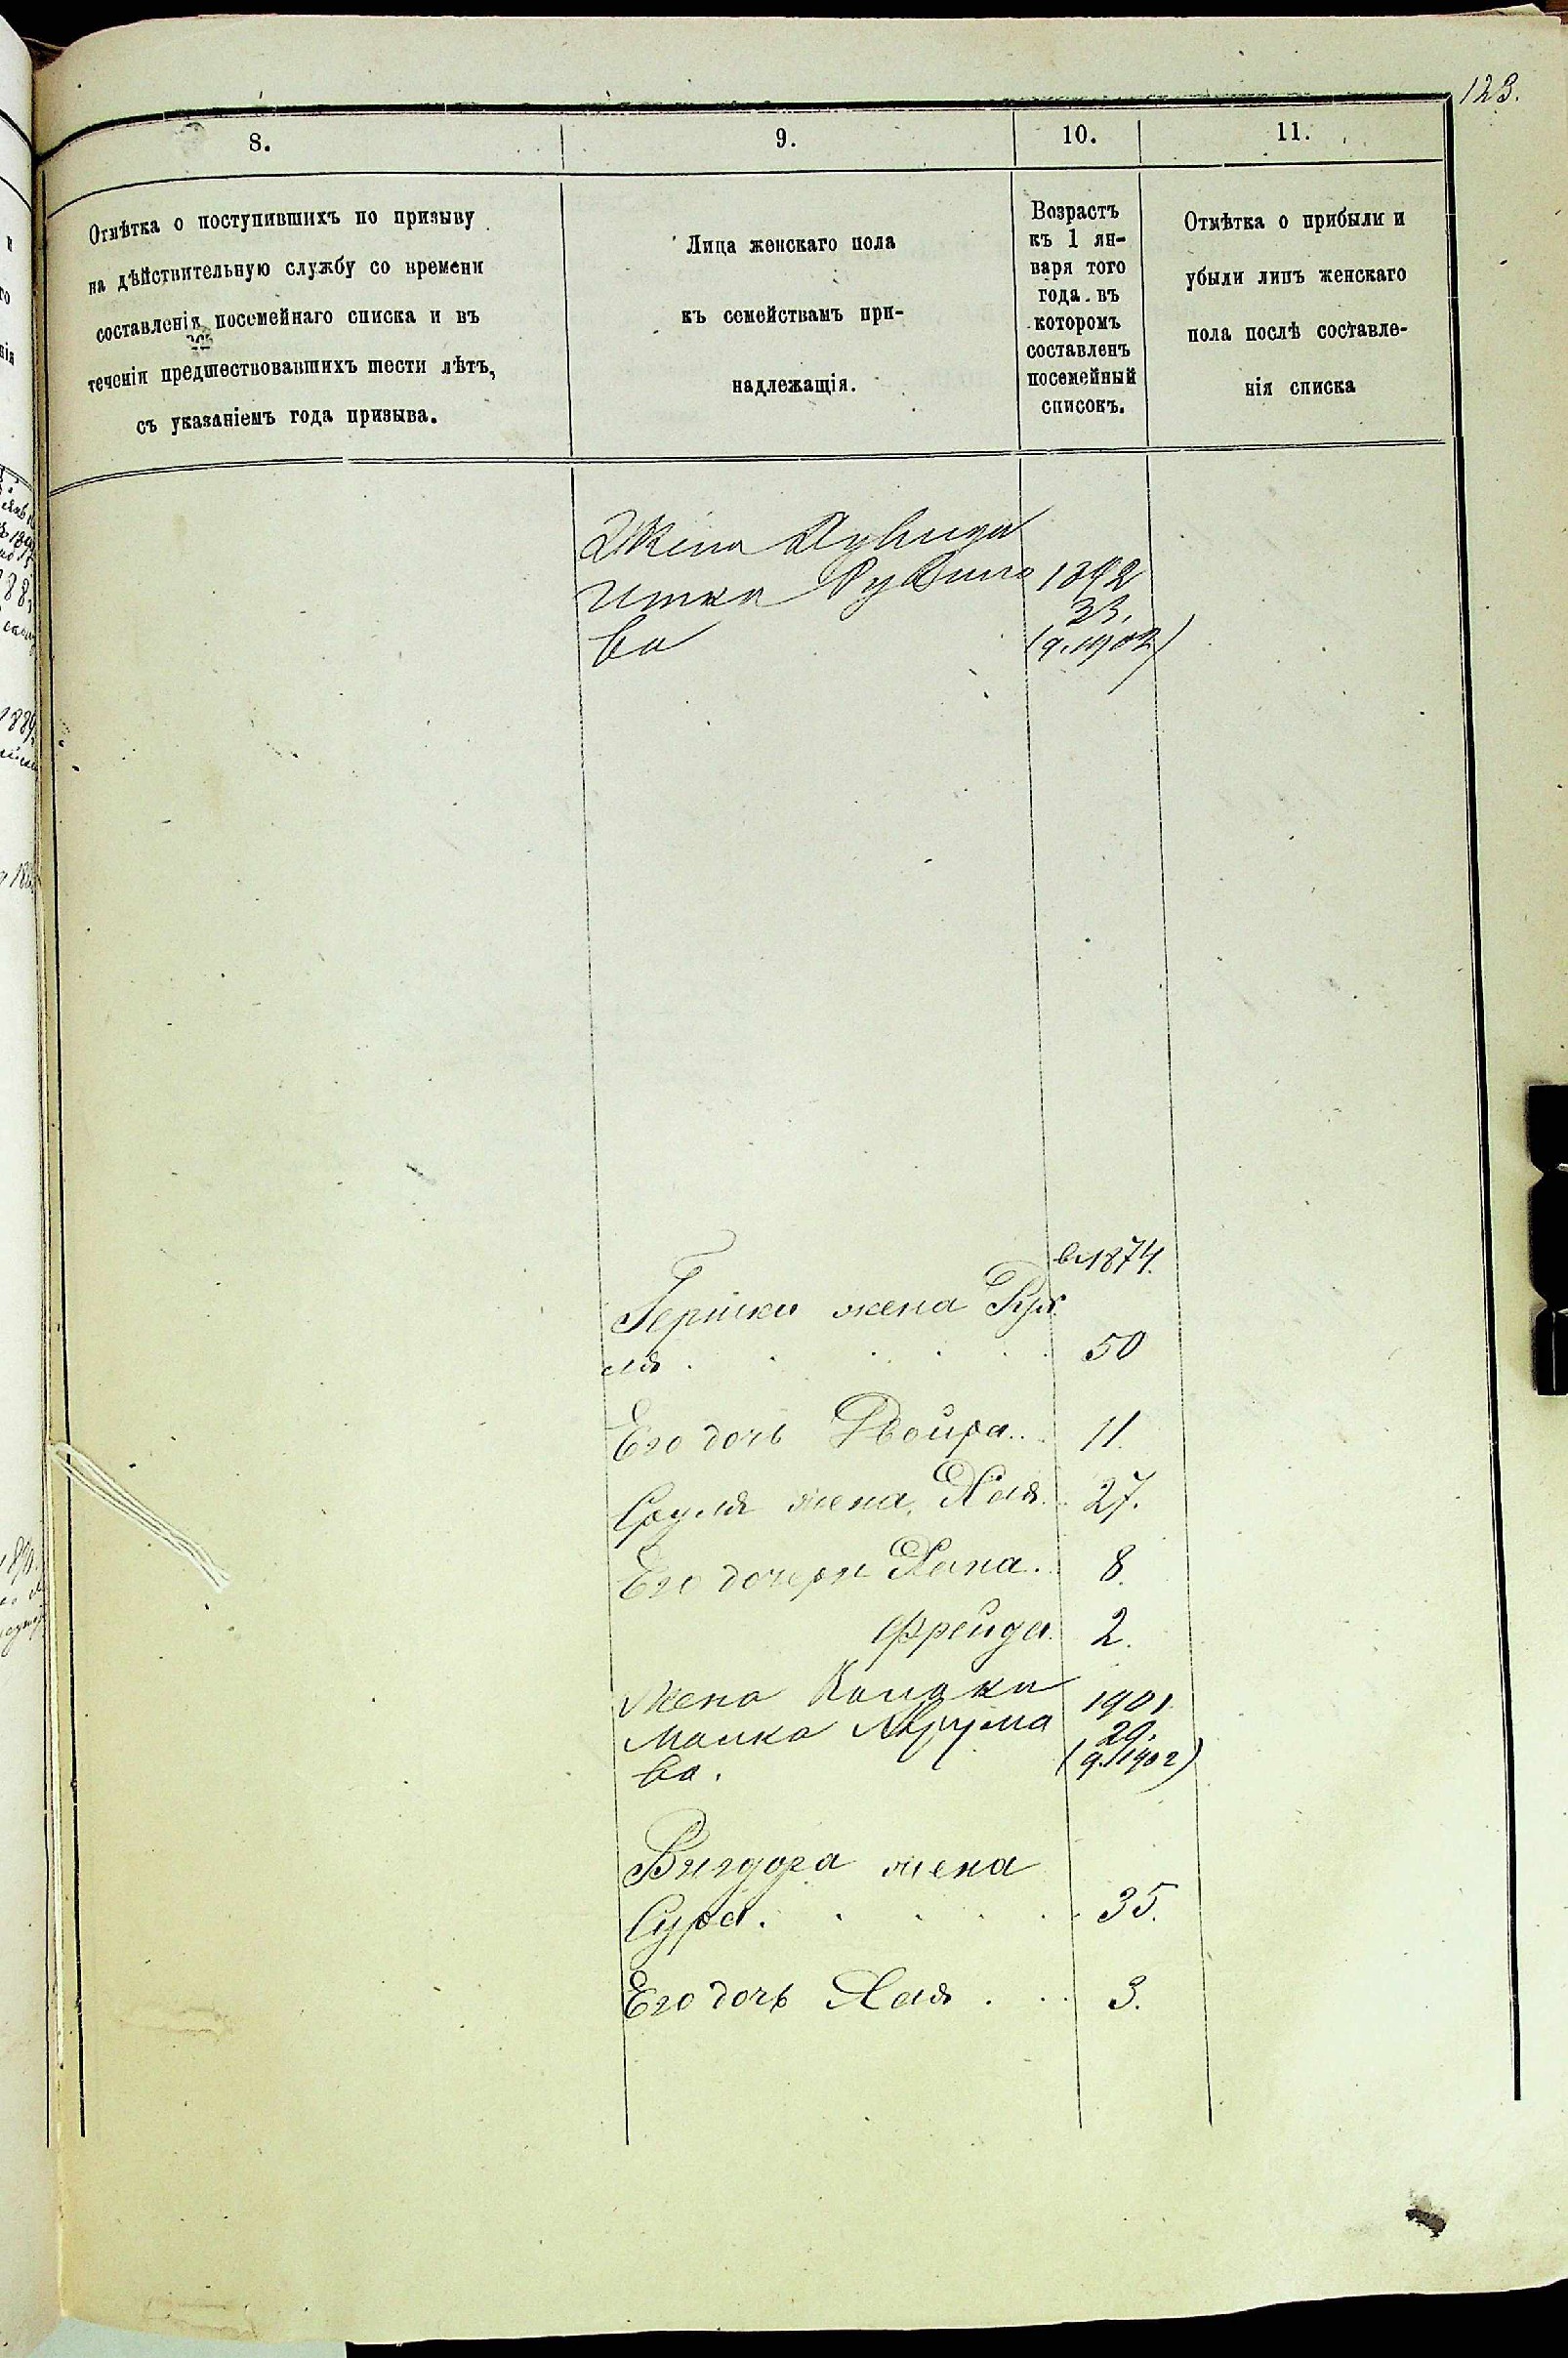 123.
8.
9.
10.
11.
Отмѣтка о поступившихъ по призыву
на дѣйствительную службу со времени
составленія посемейнаго списка и въ
теченіи предшествовавшихъ шести лѣтъ,
съ указаніемъ года призыва.
Лица женскаго пола
къ семействамъ при-
надлежащія.
Возрастъ
къ 1 ян-
варя того
года въ
которомъ
составленъ
посемейный
списокъ.
Отмѣтка о прибыли и
убыли лицъ женскаго
пола послѣ составле-
нія списка
Жена Дувида
Итка Рувино 1892
ва 33.
(9.1902)
в 1874.
Гершки жена Рух
ля . . . . . 50
Его дочь Двойра.. 11.
Сруля жена Хая. 27.
Его дочери Хана. 8.
Фрейда. 2.
Жена 1901
Малка Абрума 29.
ва. (9.1902)
Вигдора жена
Сура. . . . . 35.
Его дочь Хая . . 3.